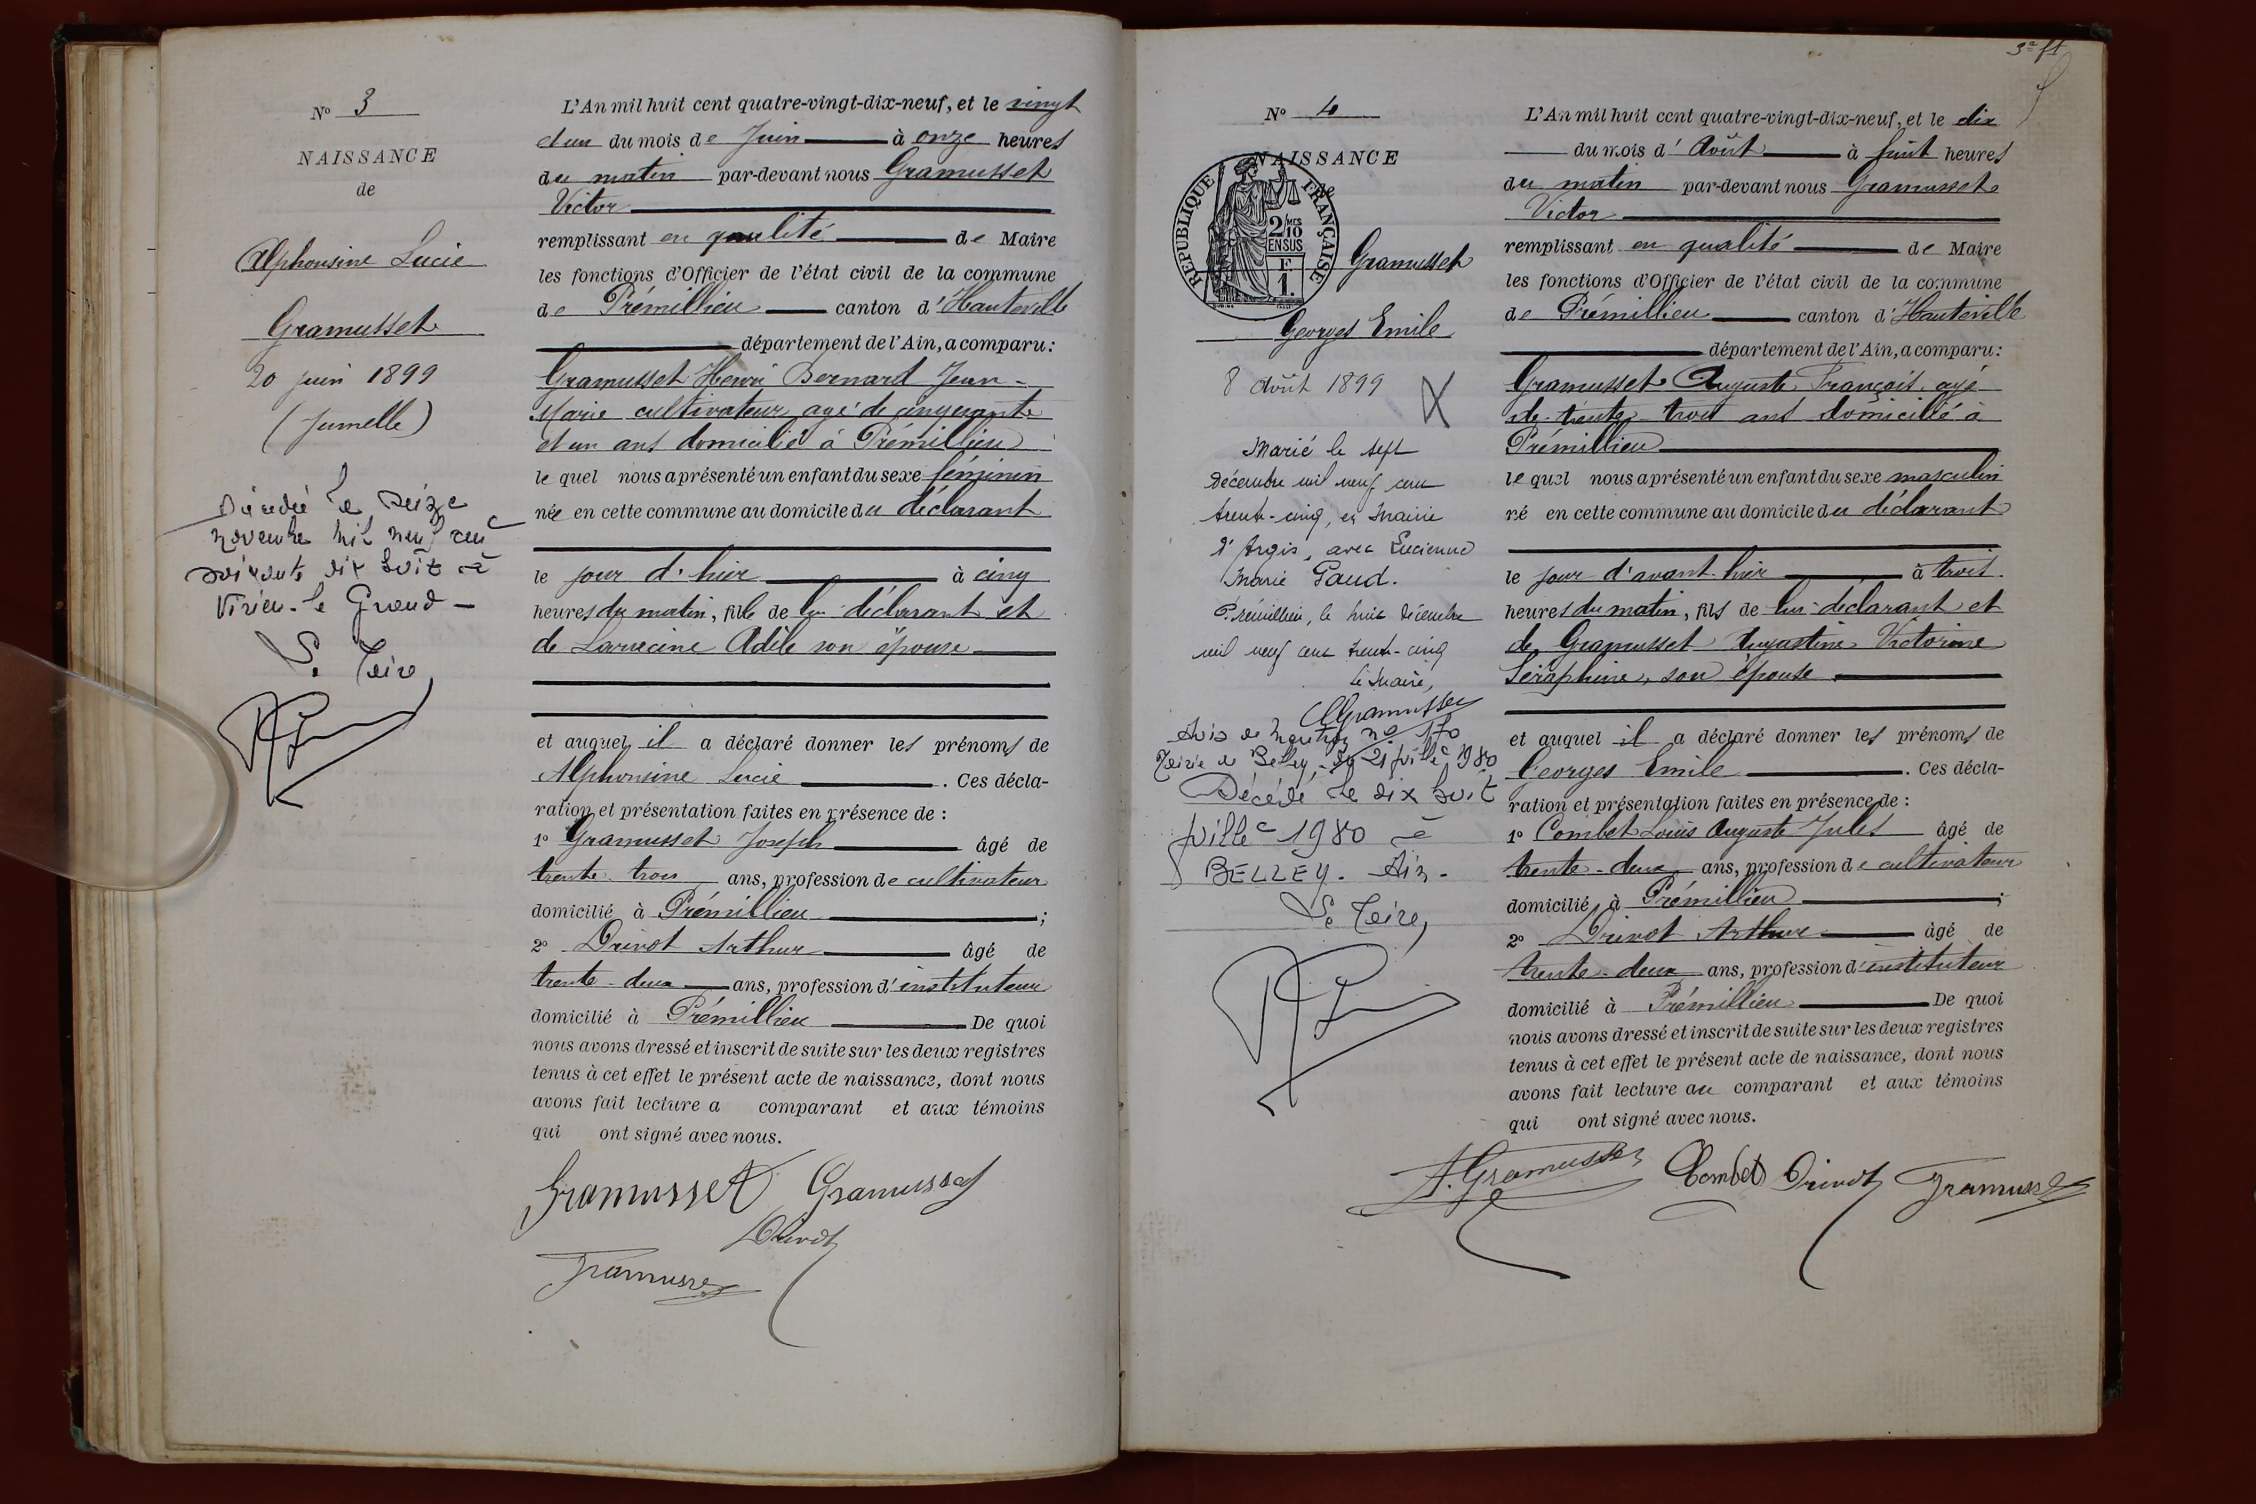 N° 3
NAISSANCE
de
Alphonsine Lucie
Gramusset
20 juin 1899
(Jumelle)
Décédée le seize
novembre mil neuf cent
soixante dix huit à
Virieu-le Grand -
Le Maire,
L'An mil huit cent quatre-vingt-dix-neuf, et le vingt
et un du mois de Juin à onze heures
du matin par-devant nous Gramusset
Victor
remplissant en qualité de Maire
les fonctions d'Officier de l'état civil de la commune
de Prémillieu canton d'Hauteville
département de l'Ain, a comparu:
Gramusset Henri Bernard Jean-
Marie cultivateur agé de cinquante
et un ans domicilié à Prémillieu
le quel nous a présenté un enfant du sexe féminin
née en cette commune au domicile du déclarant
le jour d'hier à cinq
heures du matin, fille de lui déclarant et
de Larracine Adèle son épouse
et auquel il a déclaré donner les prénoms de
Alphonsine Lucie. Ces décla-
ration et présentation faites en présence de :
1° Gramusset Joseph âgé de
trente trois ans, profession de cultivateur
domicilié à Prémillieu ;
2° Drivot Arthur âgé de
trente-deux ans, profession d'instituteur
domicilié à Prémillieu De quoi
nous avons dressé et inscrit de suite sur les deux registres
tenus à cet effet le présent acte de naissance, dont nous
avons fait lecture a comparant et aux témoins
qui ont signé avec nous.
Gramusset Gramusset
Drivot
Gramusset
3e ft
N° 4
NAISSANCE
de
RÉPUBLIQUE FRANÇAISE
2/10 MES
EN SUS
F
1.
Gramusset
Georges Emile
8 Août 1899
Marié le sept
décembre mil neuf cent
trente-cinq, en Mairie
d'Argis, avec Lucienne
Marie Gaud.
Prémillieu, le huit décembre
mil neuf cent trente-cinq
Le Maire,
Gramusset
Avis de mention n° 170
Mairie de Belley, du 21 juillet 1980
Décédé le dix huit
juillet 1980 à
BELLEY. Ain -
Le Maire,
L'An mil huit cent quatre-vingt-dix-neuf, et le dix
du mois d'Août à huit heures
du matin par-devant nous Gramusset
Victor
remplissant en qualité de Maire
les fonctions d'Officier de l'état civil de la commune
de Prémillieu canton d'Hauteville
département de l'Ain, a comparu:
Gramusset Auguste François agé
de trente-trois ans domicilié à
Prémillieu
le quel nous a présenté un enfant du sexe masculin
né en cette commune au domicile du déclarant
le jour d'avant-hier à trois
heures du matin, fils de lui déclarant et
de Gramusset Augustine Victorine
Séraphine, son épouse
et auquel il a déclaré donner les prénoms de
Georges Emile. Ces décla-
ration et présentation faites en présence de :
1° Combet Louis Auguste Jules âgé de
trente-deux ans, profession de cultivateur
domicilié à Prémillieu ;
2° Drivot Arthur âgé de
trente-deux ans, profession d'instituteur
domicilié à Prémillieu De quoi
nous avons dressé et inscrit de suite sur les deux registres
tenus à cet effet le présent acte de naissance, dont nous
avons fait lecture au comparant et aux témoins
qui ont signé avec nous.
A. Gramusset Combet Drivot Gramusset